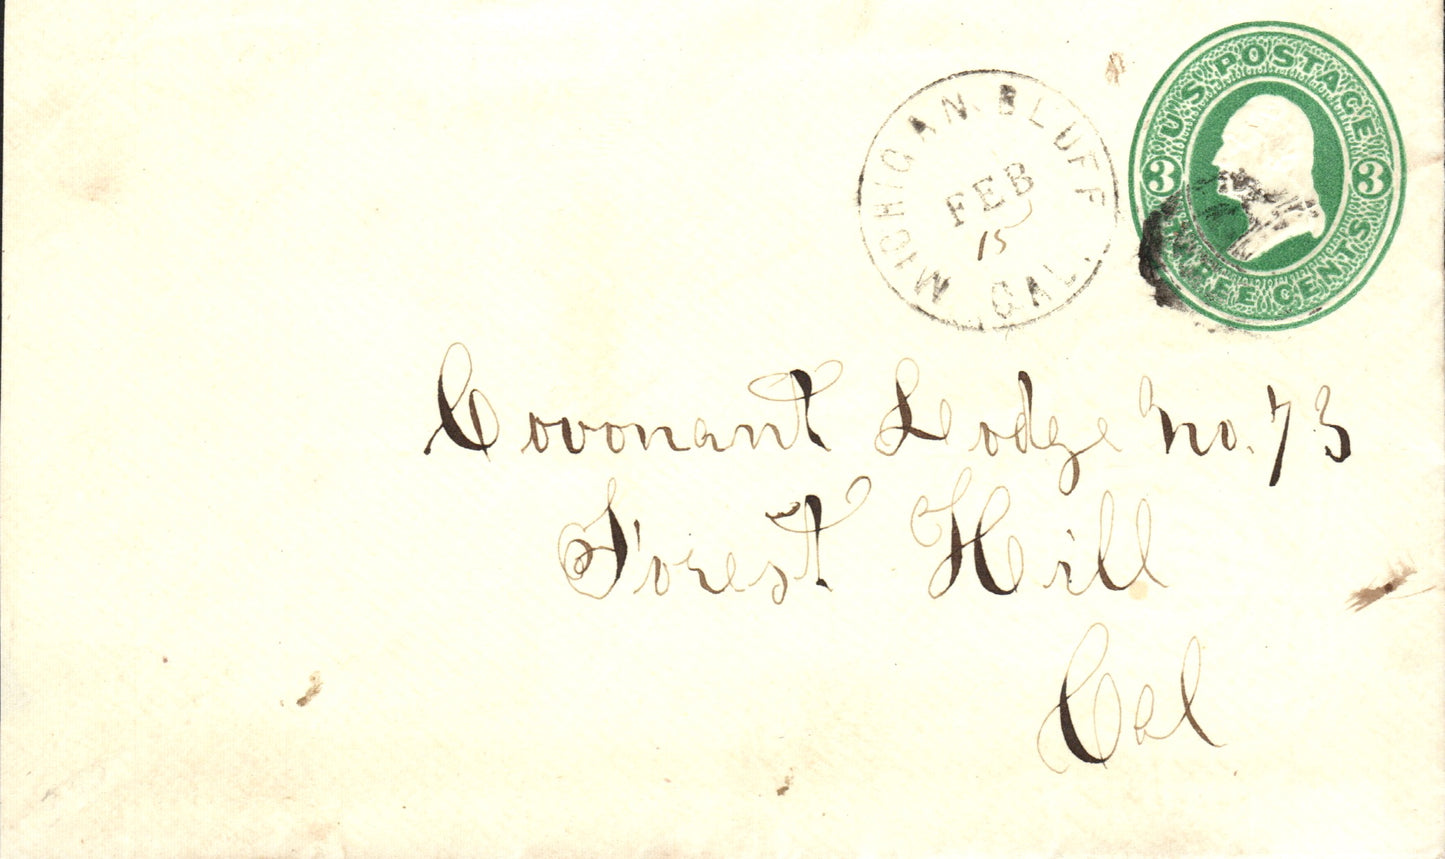 MICHIGAN BLUFF
FEB
15
CAL.
U.S. POSTAGE
3 3
THREE CENTS
Covonant Lodge No. 73
Forest Hill
Cal